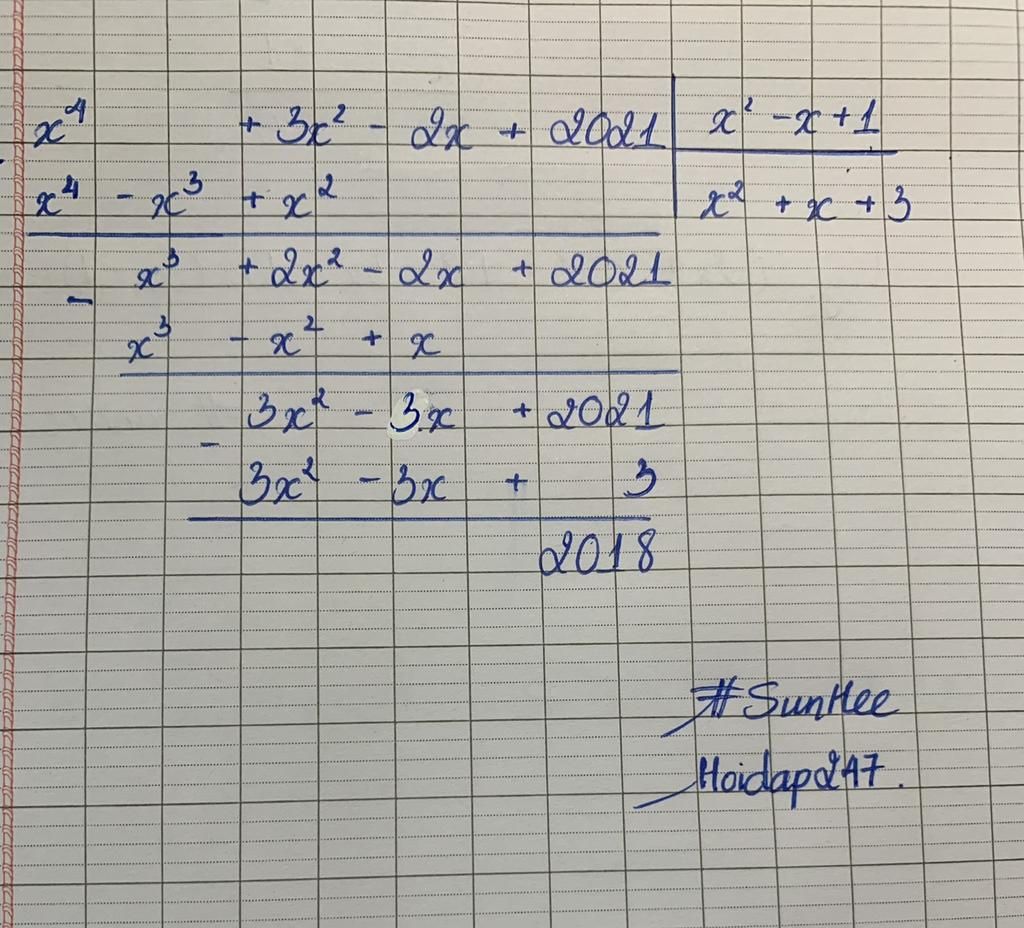 x⁴ + 3x² - 2x + 2021 | x² - x + 1
x⁴ - x³ + x² | x² + x + 3
x³ + 2x² - 2x + 2021
-
x³ - x² + x
3x² - 3x + 2021
-
3x² - 3x + 3
2018
#SunHee
Hoidap247.